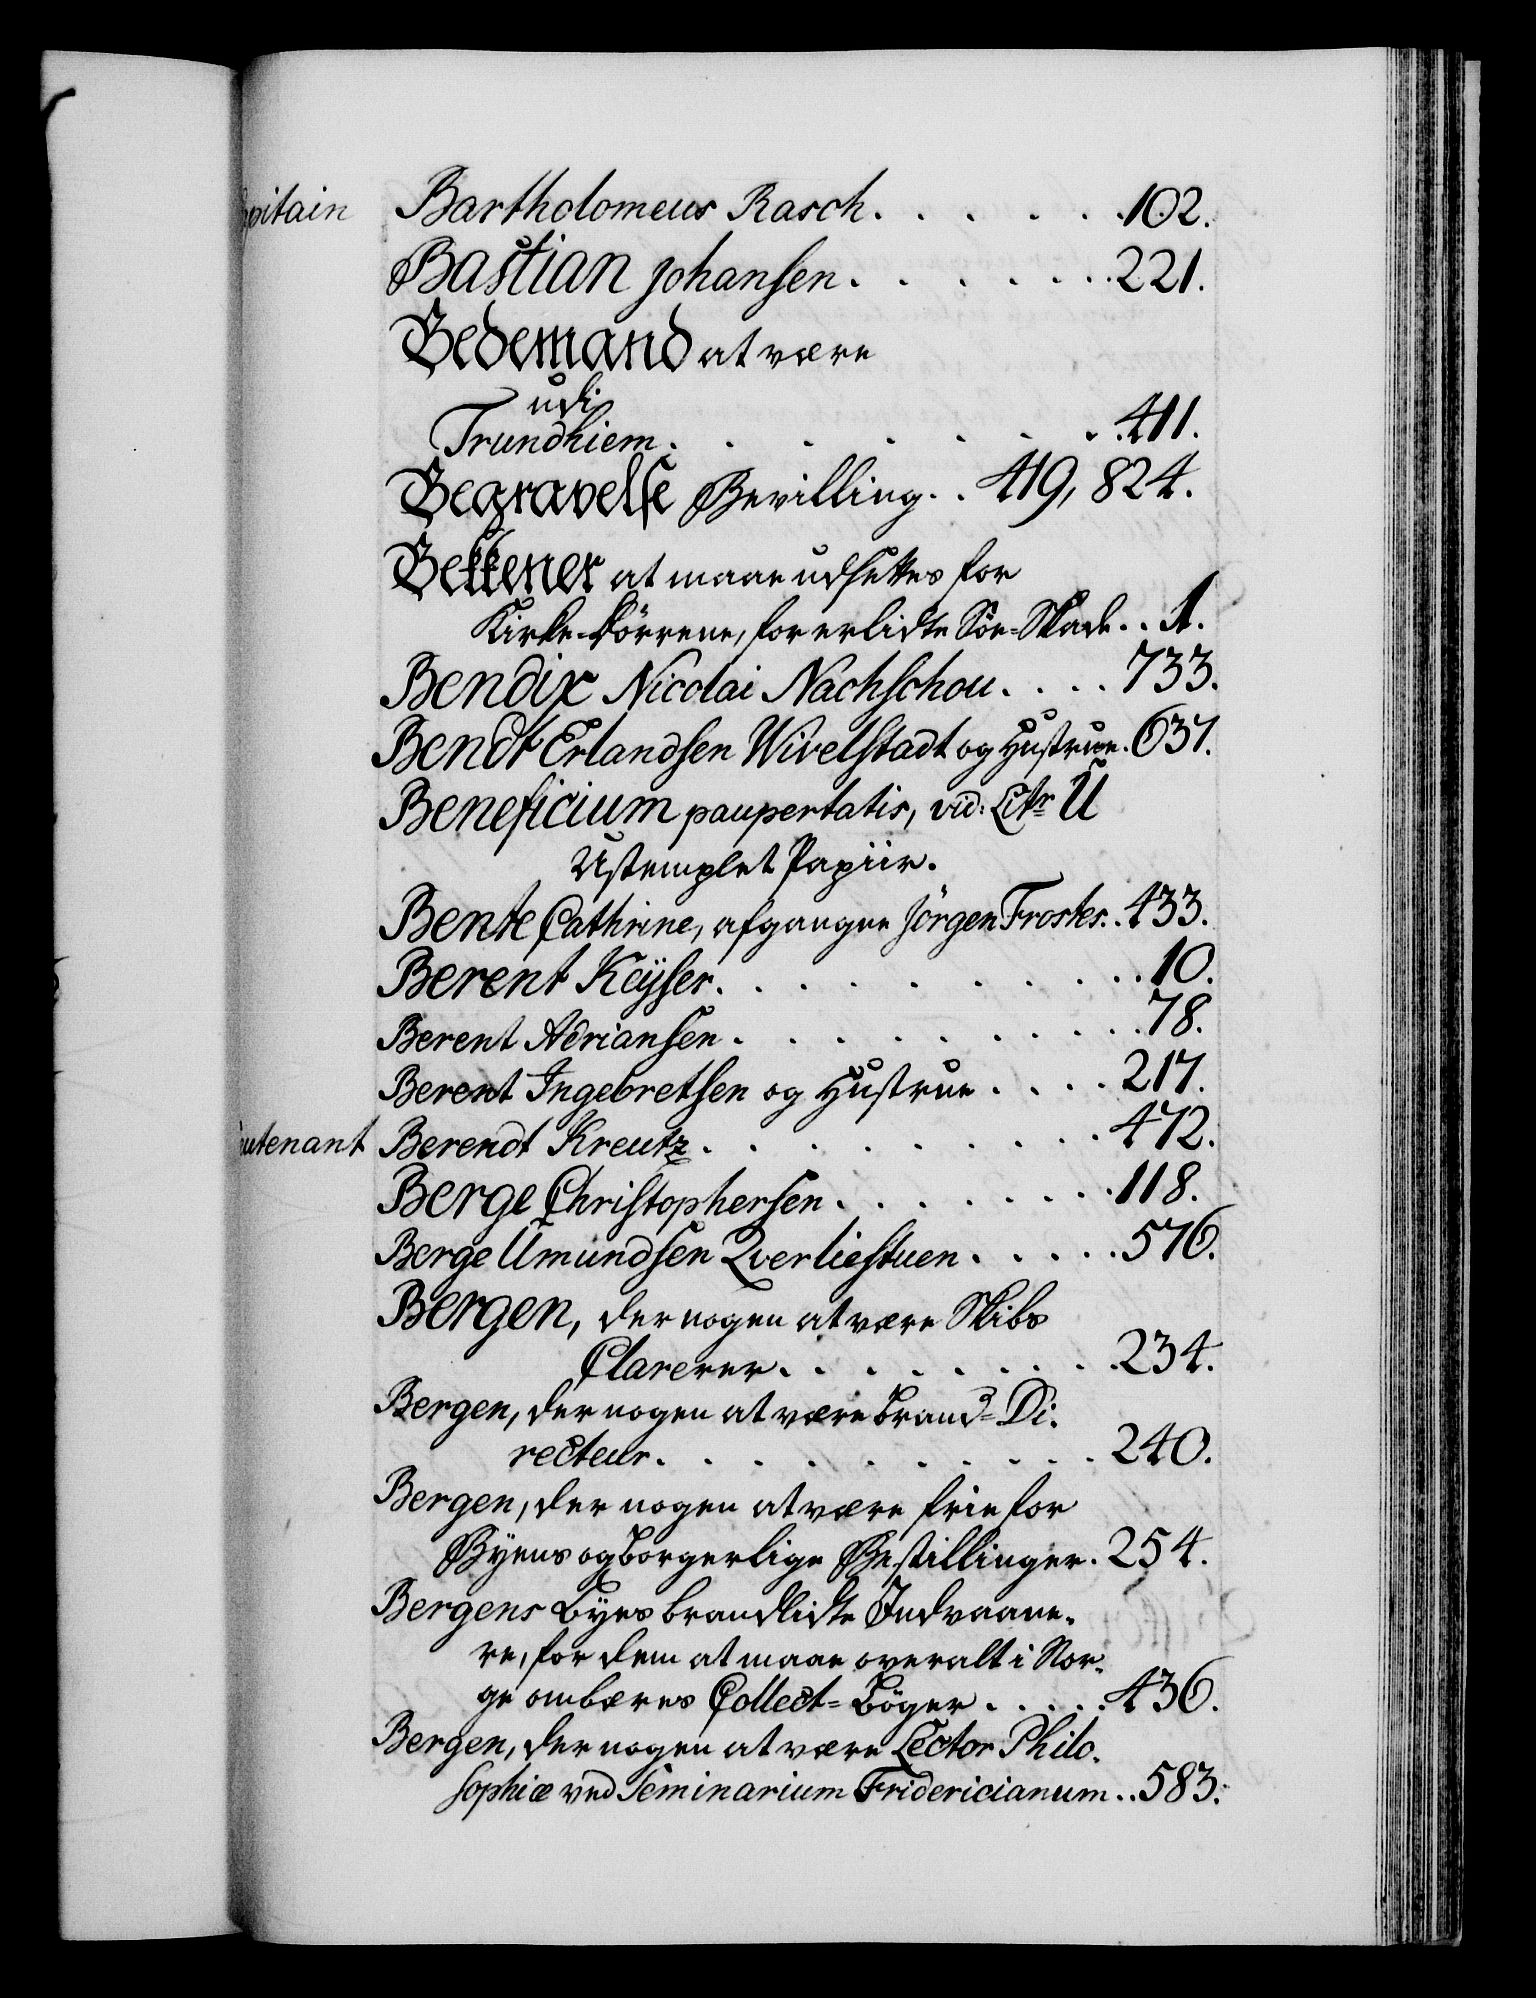 Capitain Bartholomeus Rasch. . . . . . 102.
Bastian Johansen. . . . . . . 221.
Bedemand at være
udi
Trundhiem. . . . . . . . 411.
Begravelse Bevilling. . 419, 824.
Bekkener at maae udsettes for
Kirke-Dörrene, for erlidte Söe-Skade. . 1.
Bendix Nicolai Nachschou. . . . 733.
Bendt Erlandsen Wivelstadt og Hustrue. 637.
Beneficium paupertatis, vid: Litr U
Ustemplet Papiir.
Bente Cathrine, afgangne Jörgen Frostes. . 433.
Berent Keÿser. . . . . . . . . 10.
Berent Adriansen. . . . . . . . . 78.
Berent Ingebretsen og Hustrue. . . . 217.
Lieutenant Berendt Kreutz. . . . . . . . 472.
Berge Christophersen. . . . . . . 118.
Berge Amundsen Qverliestuen. . . . . 576.
Bergen, der nogen at være Skibs
Clarerer. . . . . . . . 234.
Bergen, der nogen at være Brand-Di-
recteur. . . . . . . . . 240.
Bergen, der nogen at være frie for
Byens og borgerlige Bestillinger. 254.
Bergens Byes brandlidte Indvaane-
re, for dem at maae overalt i Nor-
ge ombæres Collect-Böger. . . . . 436.
Bergen, der nogen at være Lector Philo-
sophiæ ved Seminarium Fridericianum. . 583.